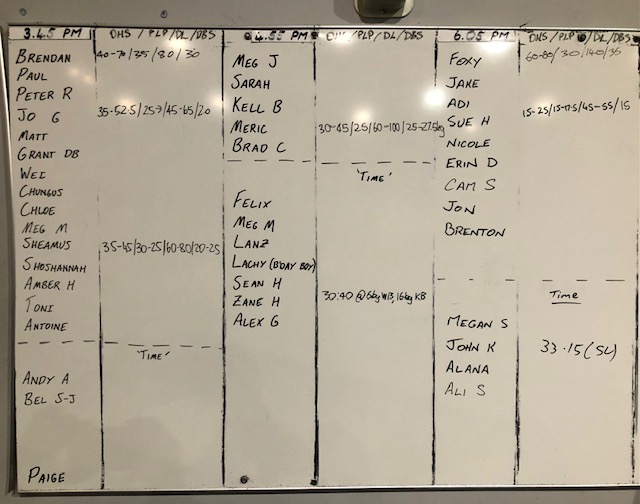 3.45 PM OHS / PLP / DL / DBS
BRENDAN 40-70/35/80/30
PAUL
PETER R
JO G 35-52.5/25-?/45-65/20
MATT
GRANT DB
WEI
CHUNGUS
CHLOE
MEG M
SHEAMUS 35-45/30-25/60-80/20-25
SHOSHANNAH
AMBER H
TONI
ANTOINE
'TIME'
ANDY A
BEL S-J
PAIGE
4.55 PM OHS / PLP / DL / DBS
MEG J
SARAH
KELL B
MERIC 30-45/25/60-100/25-27.5kg
BRAD C
'TIME'
FELIX
MEG M
LANZ
LACHY (B'DAY BOY)
SEAN H
ZANE H 30:40 @ 6kg WB, 16kg KB
ALEX G
6.05 PM OHS / PLP / DL / DBS
FOXY 60-80/30/140/35
JAKE
ADI
SUE H 15-25/15-17.5/45-55/15
NICOLE
ERIN D
CAM S
JON
BRENTON
TIME
MEGAN S
JOHN K 33.15 (SU)
ALANA
ALI S